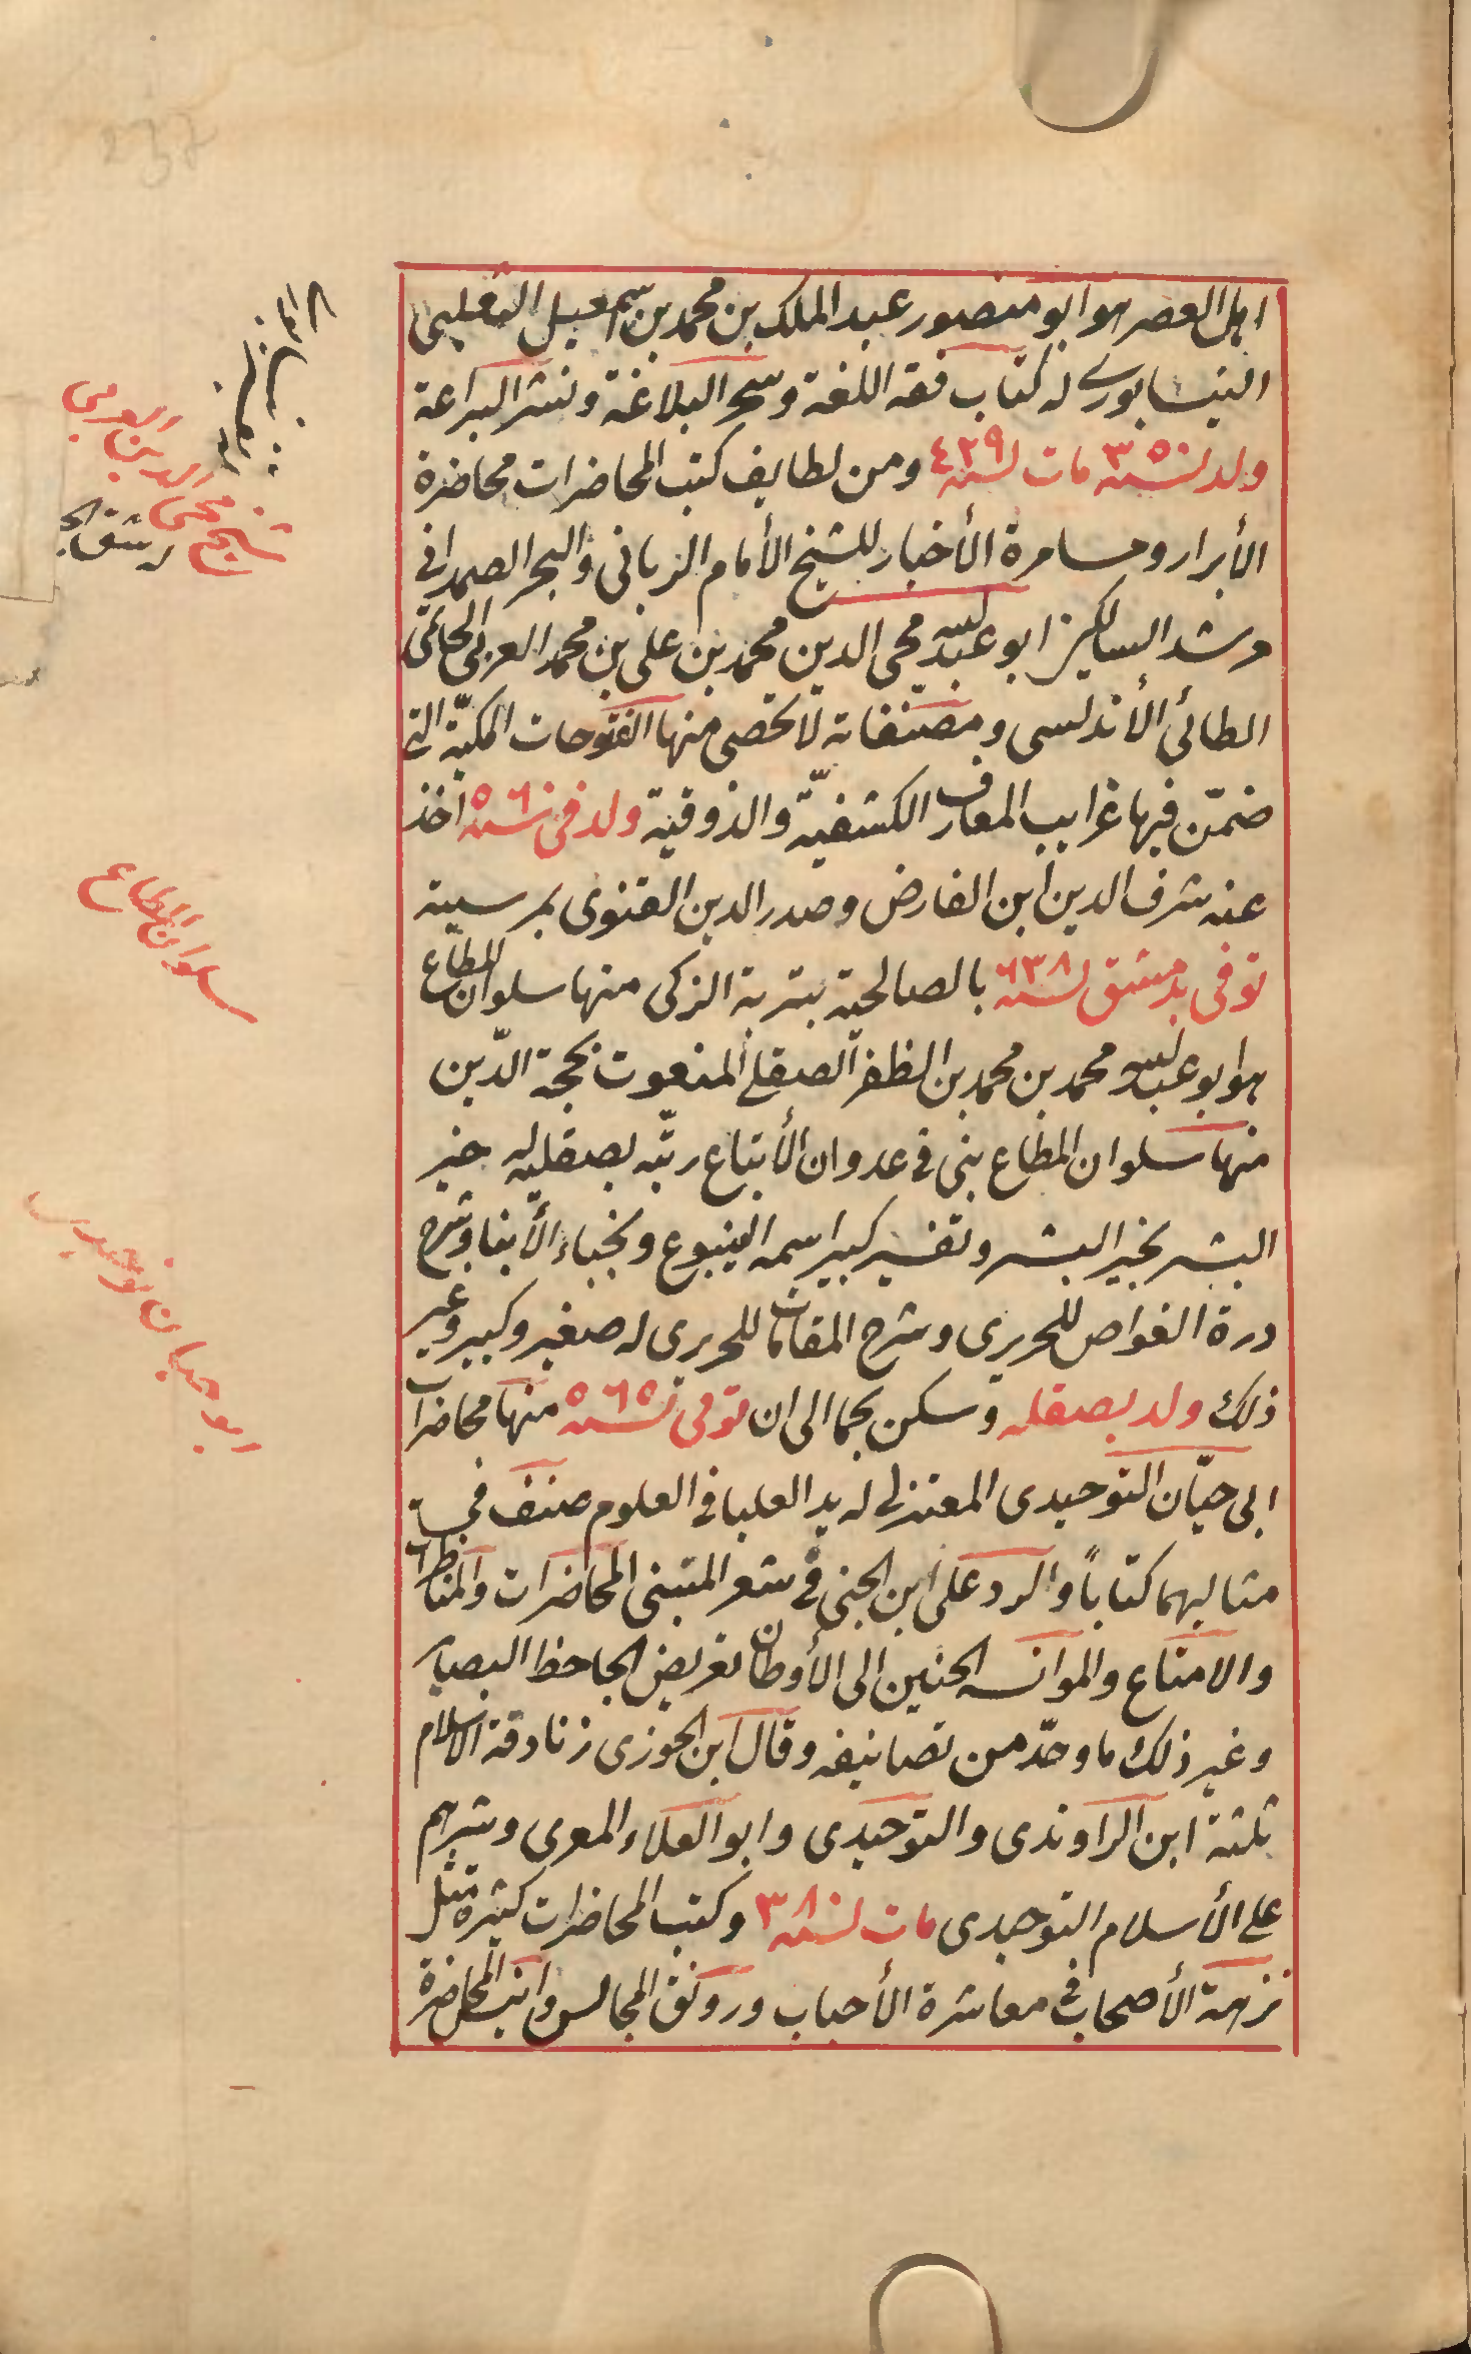 اهل العصر هو ابو منصور عبد الملك بن محمد بن اسمعيل الثعلبى
النيسابورى له كتاب فقه اللغة وسحر البلاغة ونشر البراعة
ولد لسنة ٣٥٠ مات لسنة ٤٢٩ ومن لطايف كتب المحاضرات محاضرة
الأبرار ومسامرة الأخيار للشيخ الأمام الربانى والبحر الصمدانى
مرشد السالكين ابو عبد الله محى الدين محمد بن على بن محمد العربى الحاتمى
الطائى الأندلسى ومصنفاته لا تحصى منها الفتوحات المكيّة التى
ضمّن فيها غرايب المعارف الكشفيّة والذوقية ولد فى سنة ٥٦٠ اخذ
عنه شرف الدين ابن الفارض وصدر الدين القنوى بمرسية
توفى بدمشق لسنة ٦٣٨ بالصالحية بتربة الزكى منها سلوان المطاع
هو ابو عبد الله محمد بن محمد بن الظفر الصقلى المنعوت بحجة الدّين
منها سلوان المطاع بنى فى عدوان الأتباع رتّبه بصقليه له خير
البشر بخير البشر وتفسير كبير اسمه الينبوع ونجباء الأبنا وشرح
درة الغواص للحريرى وشرح المقامات للحريرى له صغير وكبير وغير
ذلك ولد بصقله وسكن بحما الى ان توفى سنة ٥٦٥ منها محاضرات
ابى حيّان التوحيدى المعتزلى له يد العليا فى العلوم صنف فى
مثالبهما كتاباً والرد على ابن الجنى فى شعر المتنبى المحاضرات والمناظرات
والامتاع والموانسه الحنين الى الأوطان تقريض الجاحظ البصياير
وغير ذلك ما وجد من تصانيفه وقال ابن الجوزى زنادقة الاسلام
ثلثة ابن الراوندى والتوحيدى وابو العلاء المعرى وشرهم
على الأسلام التوحيدى مات لسنة ٣٨٠ وكتب المحاضرات كثيرة مثل
نزهة الأصحاب فى معاشرة الأحباب ورونق المجالس وانيس المحاضرة
شيخ محى الدين العربى
سلوان المطاع
ابو حيان توحيدى